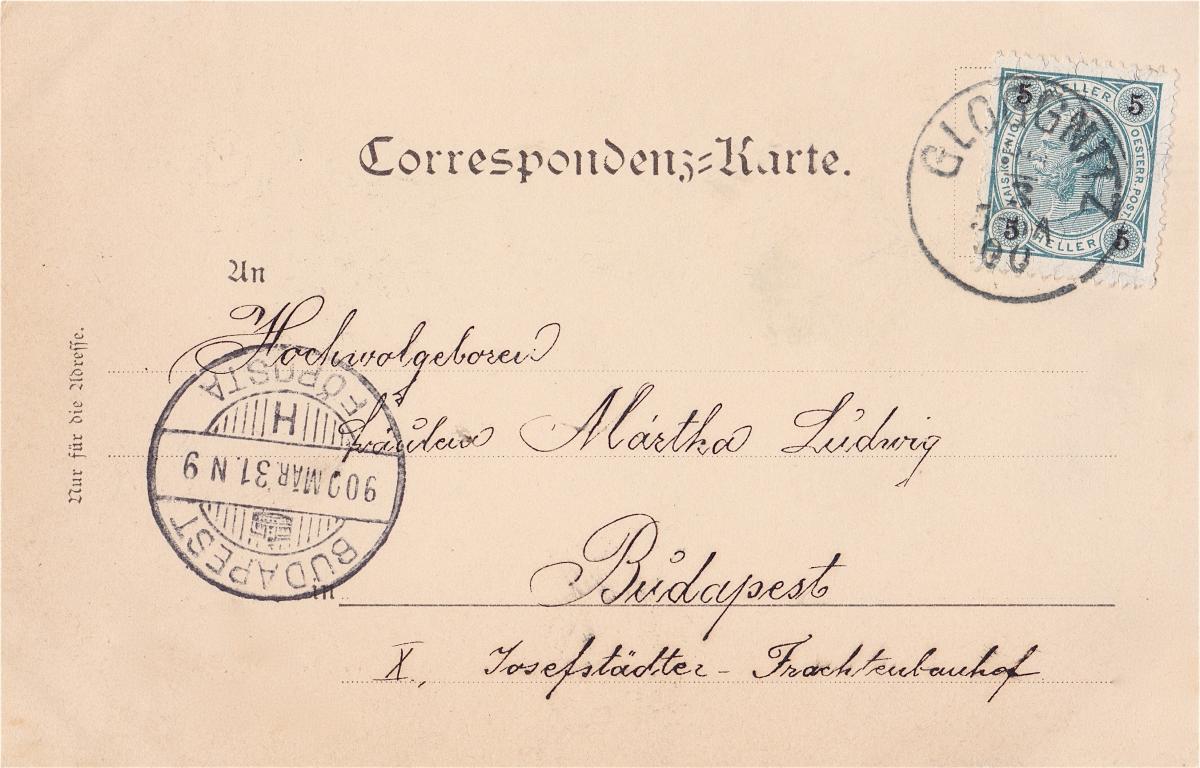 Correspondenz=Karte.
5 HELLER 5
KAIS. KOENIGL. OESTERR. POST
5 HELLER 5
GLOGGNITZ
00
An
Hochwolgeboren
Fräulein Mártha Ludwig
FŐPOSTA
H
900 MÁR. 31. N 9
BUDAPEST
in
Budapest
X., Josefstädter - Frachtenbanhof
Nur für die Adresse.